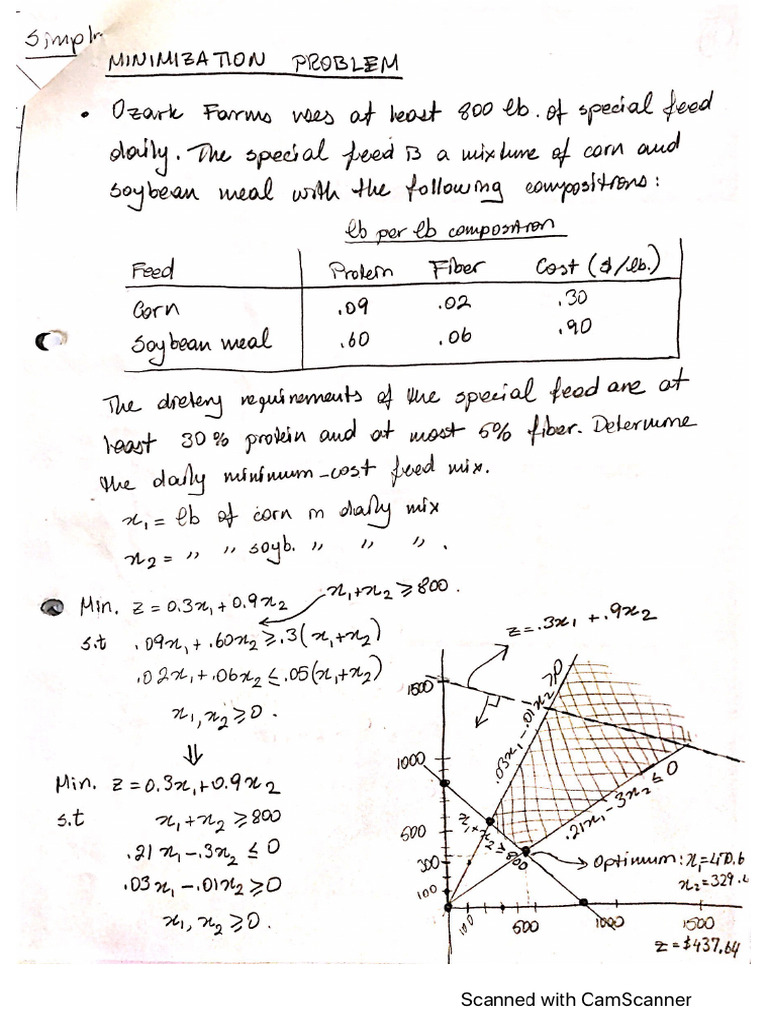 Simpl
MINIMIZATION PROBLEM
• Ozark Farms uses at least 800 lb. of special feed
daily. The special feed is a mixture of corn and
soybean meal with the following compositions:
lb per lb composition
Feed Protein Fiber Cost ($/lb.)
Corn .09 .02 .30
Soybean meal .60 .06 .90
The dietery requirements of the special feed are at
least 30% protein and at most 5% fiber. Determine
the daily minimum-cost feed mix.
x₁ = lb of corn in daily mix
x₂ = " " soyb. " " ".
Min. z = 0.3x₁ + 0.9x₂
x₁+x₂ ≥ 800.
s.t .09x₁ + .60x₂ ≥ .3(x₁+x₂)
.02x₁ + .06x₂ ≤ .05(x₁+x₂)
x₁, x₂ ≥ 0.
⇓
Min. z = 0.3x₁ + 0.9x₂
s.t x₁ + x₂ ≥ 800
.21x₁ - .3x₂ ≤ 0
.03x₁ - .01x₂ ≥ 0
x₁, x₂ ≥ 0.
z = .3x₁ + .9x₂
1500
.03x₁ - .01x₂ ≥ 0
1000
.21x₁ - .3x₂ ≤ 0
500
x₁+x₂ ≥ 800
300
Optimum: x₁=470.6
100
x₂=329.4
100 500 1000 1500
z = $437.64
Scanned with CamScanner